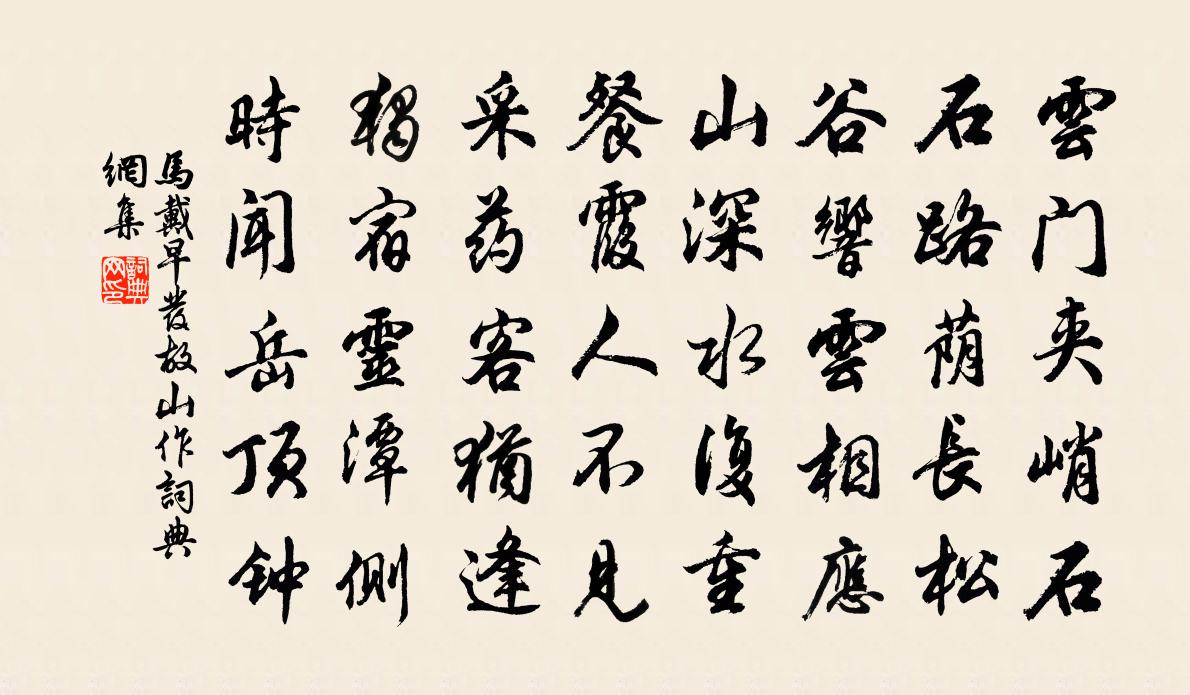 雲门夹峭石
石路荫長松
谷響雲相應
山深水復重
餐霞人不見
采药客猶逢
獨宿靈潭側
時聞岳顶钟
馬戴早發故山作詞典
網集
詞典
网印